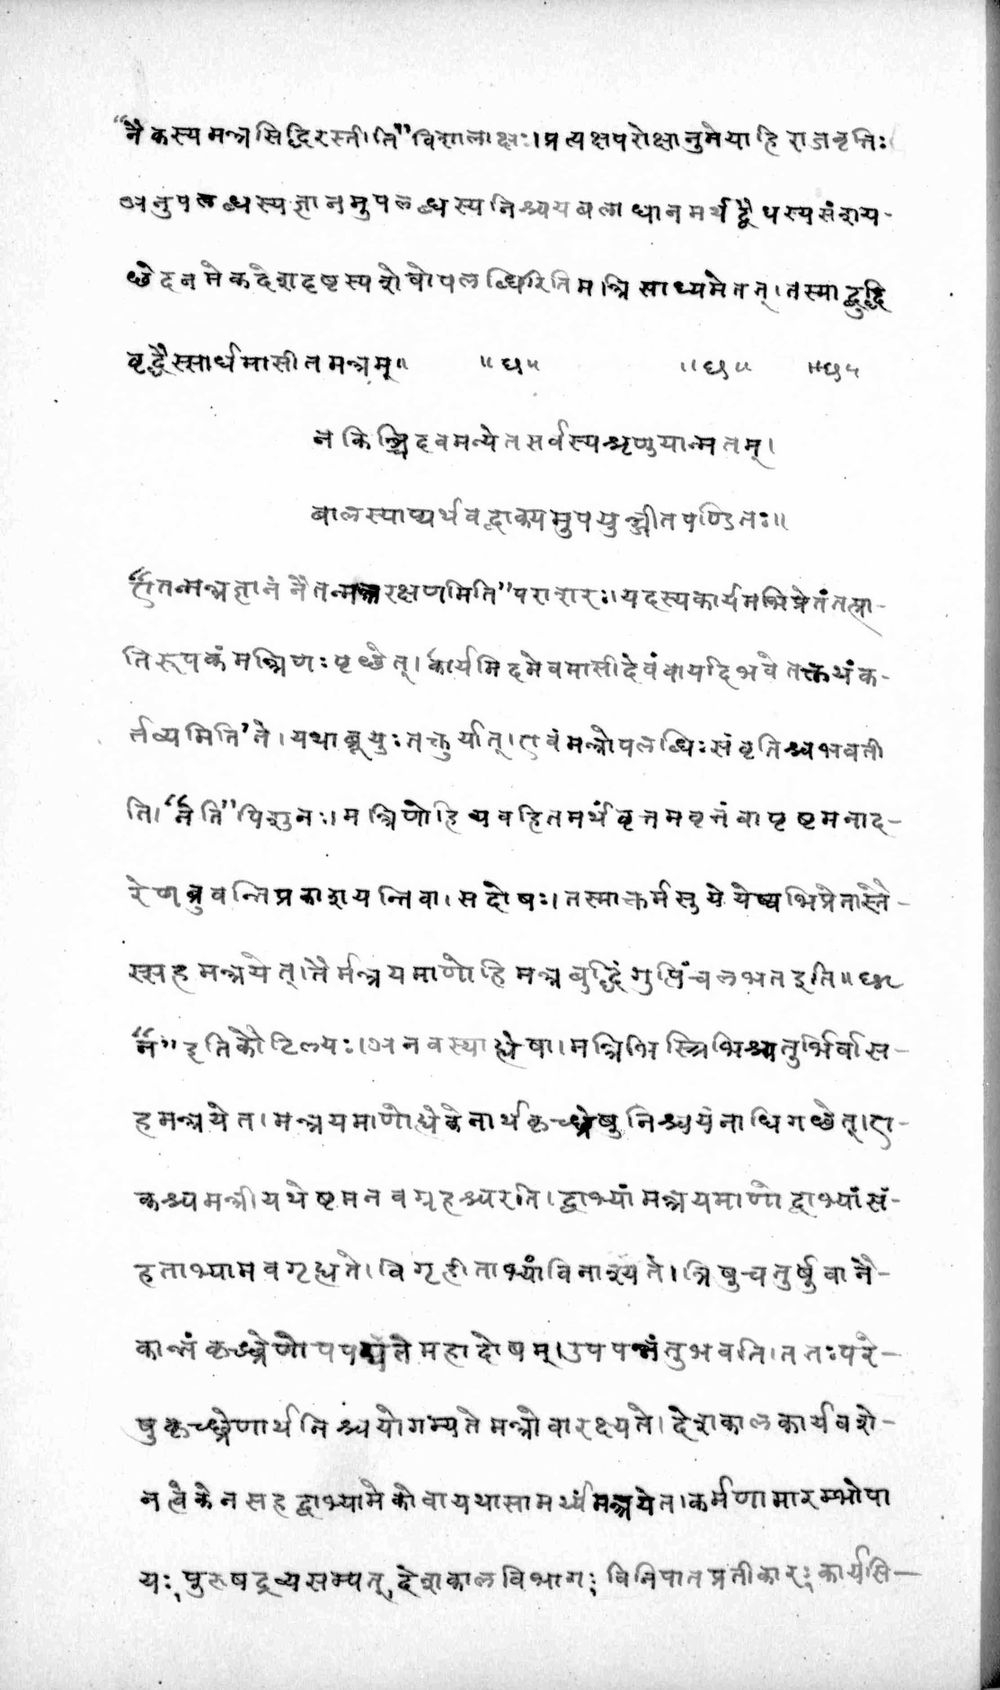 “नैकस्य मन्त्रसिद्धिरस्तीति” विशालाक्षः। प्रत्यक्षपरोक्षानुमेया हि राजवृत्तिः
अनुपलब्धस्य ज्ञानमुपलब्धस्य निश्चयबलाधानमर्थद्वैधस्य संशय-
छेदनमेकदेशदृष्टस्य शेषोपलब्धिरिति मन्त्रिसाध्यमेतत्। तस्माद्बुद्धि
वृद्धैस्सार्धमासीत मन्त्रम्॥ ॥छ॥ ॥छ॥ ॥छ॥
न किञ्चिदवमन्येत सर्वस्य श्रृणुयान्मतम्।
बालस्याप्यर्थवद्वाक्यमुपयुञ्जीत पण्डितः॥
“एतन्मन्त्रज्ञानं नैतन्मन्त्ररक्षणमिति” पराशारः। यदस्य कार्यमभिप्रेतं तत्प्र-
तिरूपकं मन्त्रिणः पृछेत्। कार्यमिदमेवमासीदेवं वा यदि भवेतत्कथं क-
र्तव्यमिति’ ते। यथा ब्रूयुः तत्कुर्यात्। एवं मन्त्रोपलब्धिः संवृतिश्च भवती
ति। “नेति” पिशुनः। मन्त्रिणो हि व्यवहितमर्थं वृत्तमवृत्तं वा पृष्टमनाद-
रेण ब्रुवन्ति प्रकाशयन्ति वा। स दोषः। तस्मात्कर्मसु ये येष्वभिप्रेतास्तै-
स्सह मन्त्रयेत्। तैर्मन्त्रयमाणो हि मन्त्रबुद्धिं गुप्तिं च लभत इति॥छ॥
“न” इति कौटिल्यः। अनवस्था ह्येषा। मन्त्रिभिस्त्रिभिश्चतुर्भिर्वा स-
ह मन्त्रयेत। मन्त्रयमाणो ह्येकेनार्थकृच्छ्रेषु निश्चयं नाधिगछेत्। ए-
कश्च मन्त्री यथेष्टमनवग्रहश्चरति। द्वाभ्यां मन्त्रयमाणो द्वाभ्यां सं-
हताभ्यामवगृह्यते। विगृहीताभ्यां विनाश्यते। त्रिषु चतुर्षु वा नै-
कान्तं कृच्छ्रेणोपपद्यते महादोषम्। उपपन्नं तु भवति। ततः परे-
षु कृच्छ्रेणार्थनिश्चयो गम्यते मन्त्रो वा रक्ष्यते। देशकालकार्यवशे-
न त्वेकेन सह द्वाभ्यामेको वा यथासामर्थ्यं मन्त्रयेत। कर्मणामारम्भोपा
यः, पुरुषद्रव्यसम्पत्, देशकालविभागः, विनिपातप्रतीकारः, कार्यसि-